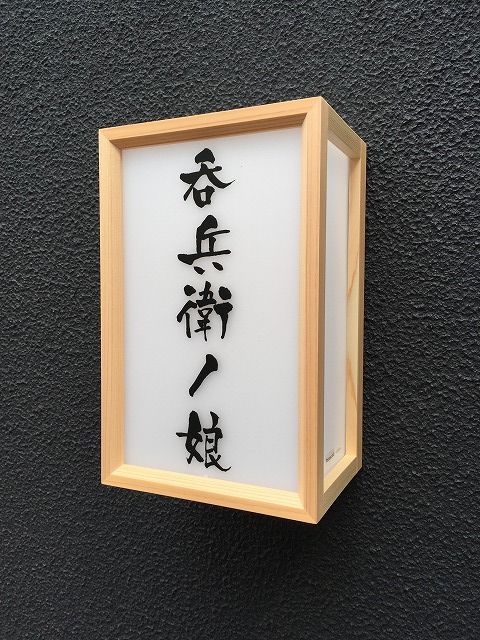 呑兵衛ノ娘